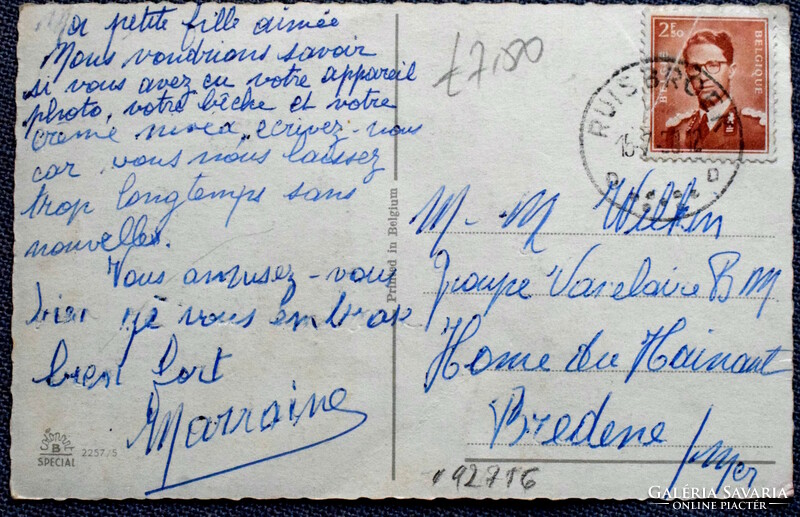 Ma petite fille aimée
Nous voudrions savoir
si vous avez eu votre appareil
photo, votre bêche et votre
crème écrivez-nous
car vous nous laissez
trop longtemps sans
nouvelles.
Vous amusez-vous
bien je vous embrasse
bien fort
Marraine
SPECIAL
B
2257/5
Printed in Belgium
£7,80
2F50
BELGIQUE
RUISBROEK
D D
M. M Wilkin
Troupe Vaselaire B M
Home du Hainaut
Bredene s/mer
92716
GALÉRIA SAVARIA
ONLINE PIACTÉR